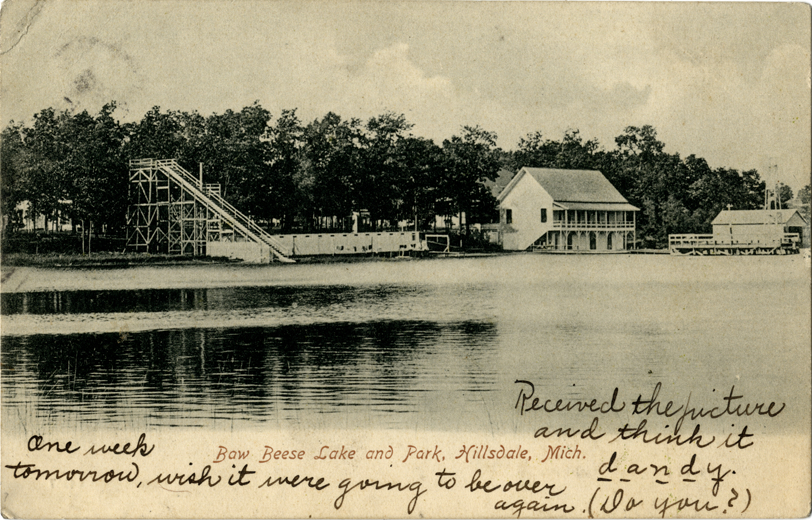 Received the picture
and think it
dandy.
(Do you?)
Baw Beese Lake and Park, Hillsdale, Mich.
One week
tomorrow, wish it were going to be over
again.